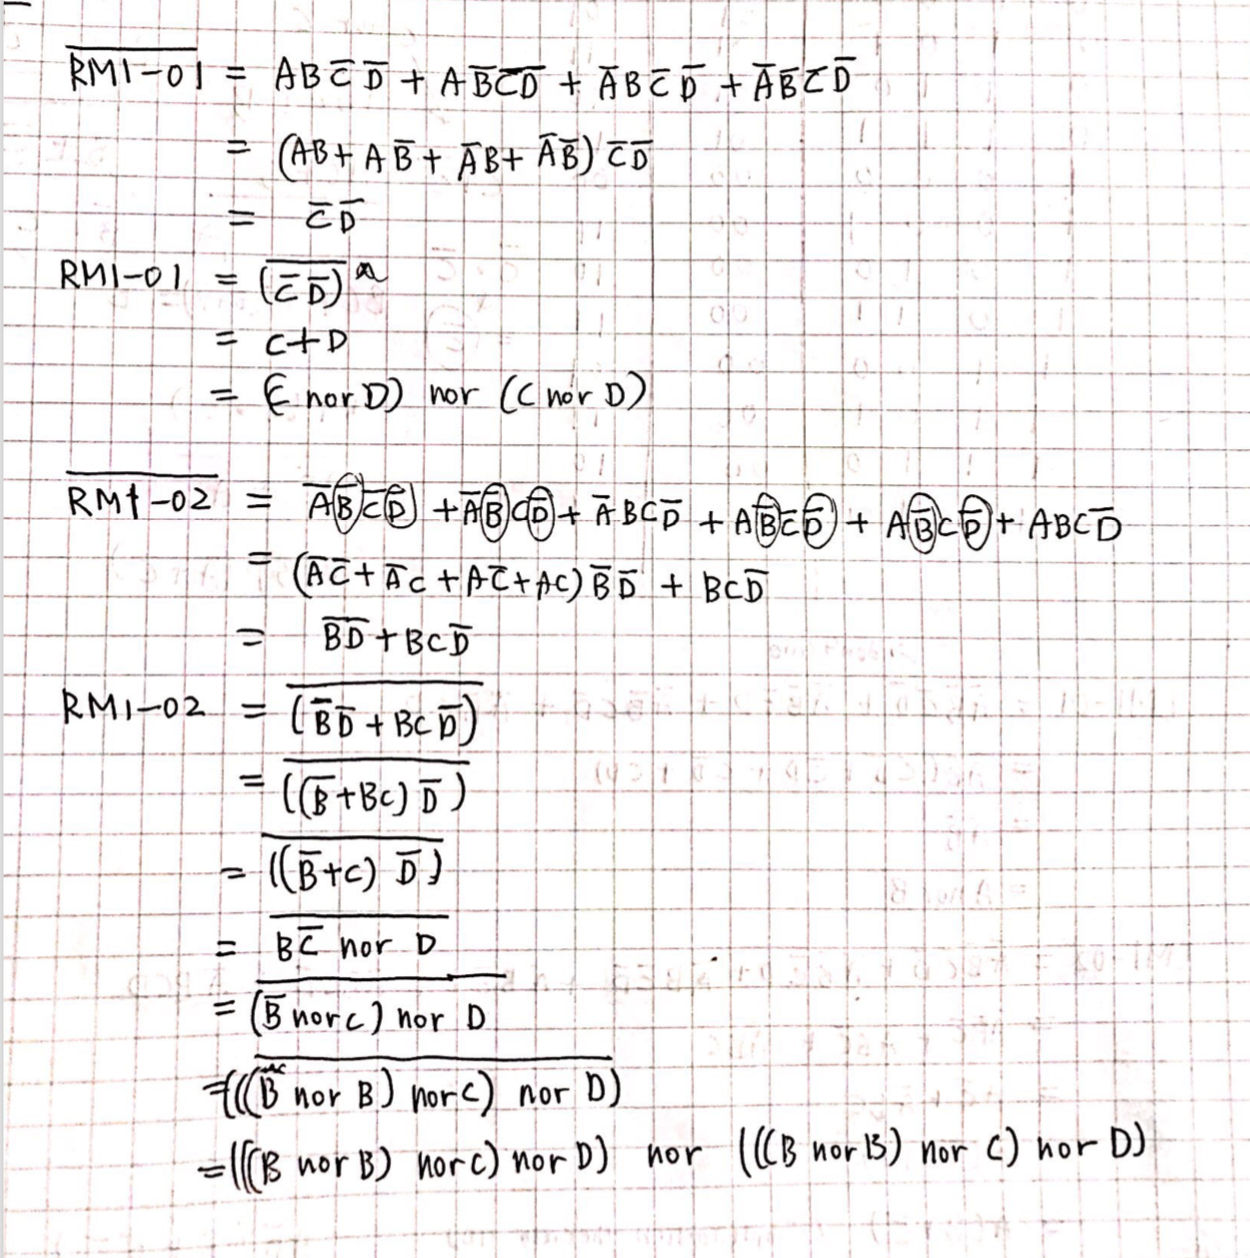 R̅M̅1̅-̅0̅1̅ = ABC̅D̅ + AB̅C̅D̅ + A̅BC̅D̅ + A̅B̅C̅D̅
= (AB + AB̅ + A̅B + A̅B̅) C̅D̅
= C̅D̅
RM1-01 = \overline{(C̅D̅)}
= C+D
= (C nor D) nor (C nor D)
R̅M̅1̅-̅0̅2̅ = A̅B̅C̅D̅ + A̅B̅CD̅ + A̅BCD̅ + AB̅C̅D̅ + AB̅CD̅ + ABCD̅
= (A̅C̅ + A̅C + AC̅ + AC) B̅D̅ + BCD̅
= B̅D̅ + BCD̅
RM1-02 = \overline{(B̅D̅ + BCD̅)}
= \overline{((B̅+BC) D̅)}
= \overline{((B̅+C) D̅)}
= \overline{BC̅ nor D}
= \overline{(B̅ nor C) nor D}
= \overline{(((B nor B) nor C) nor D)}
= (((B nor B) nor C) nor D) nor (((B nor B) nor C) nor D)